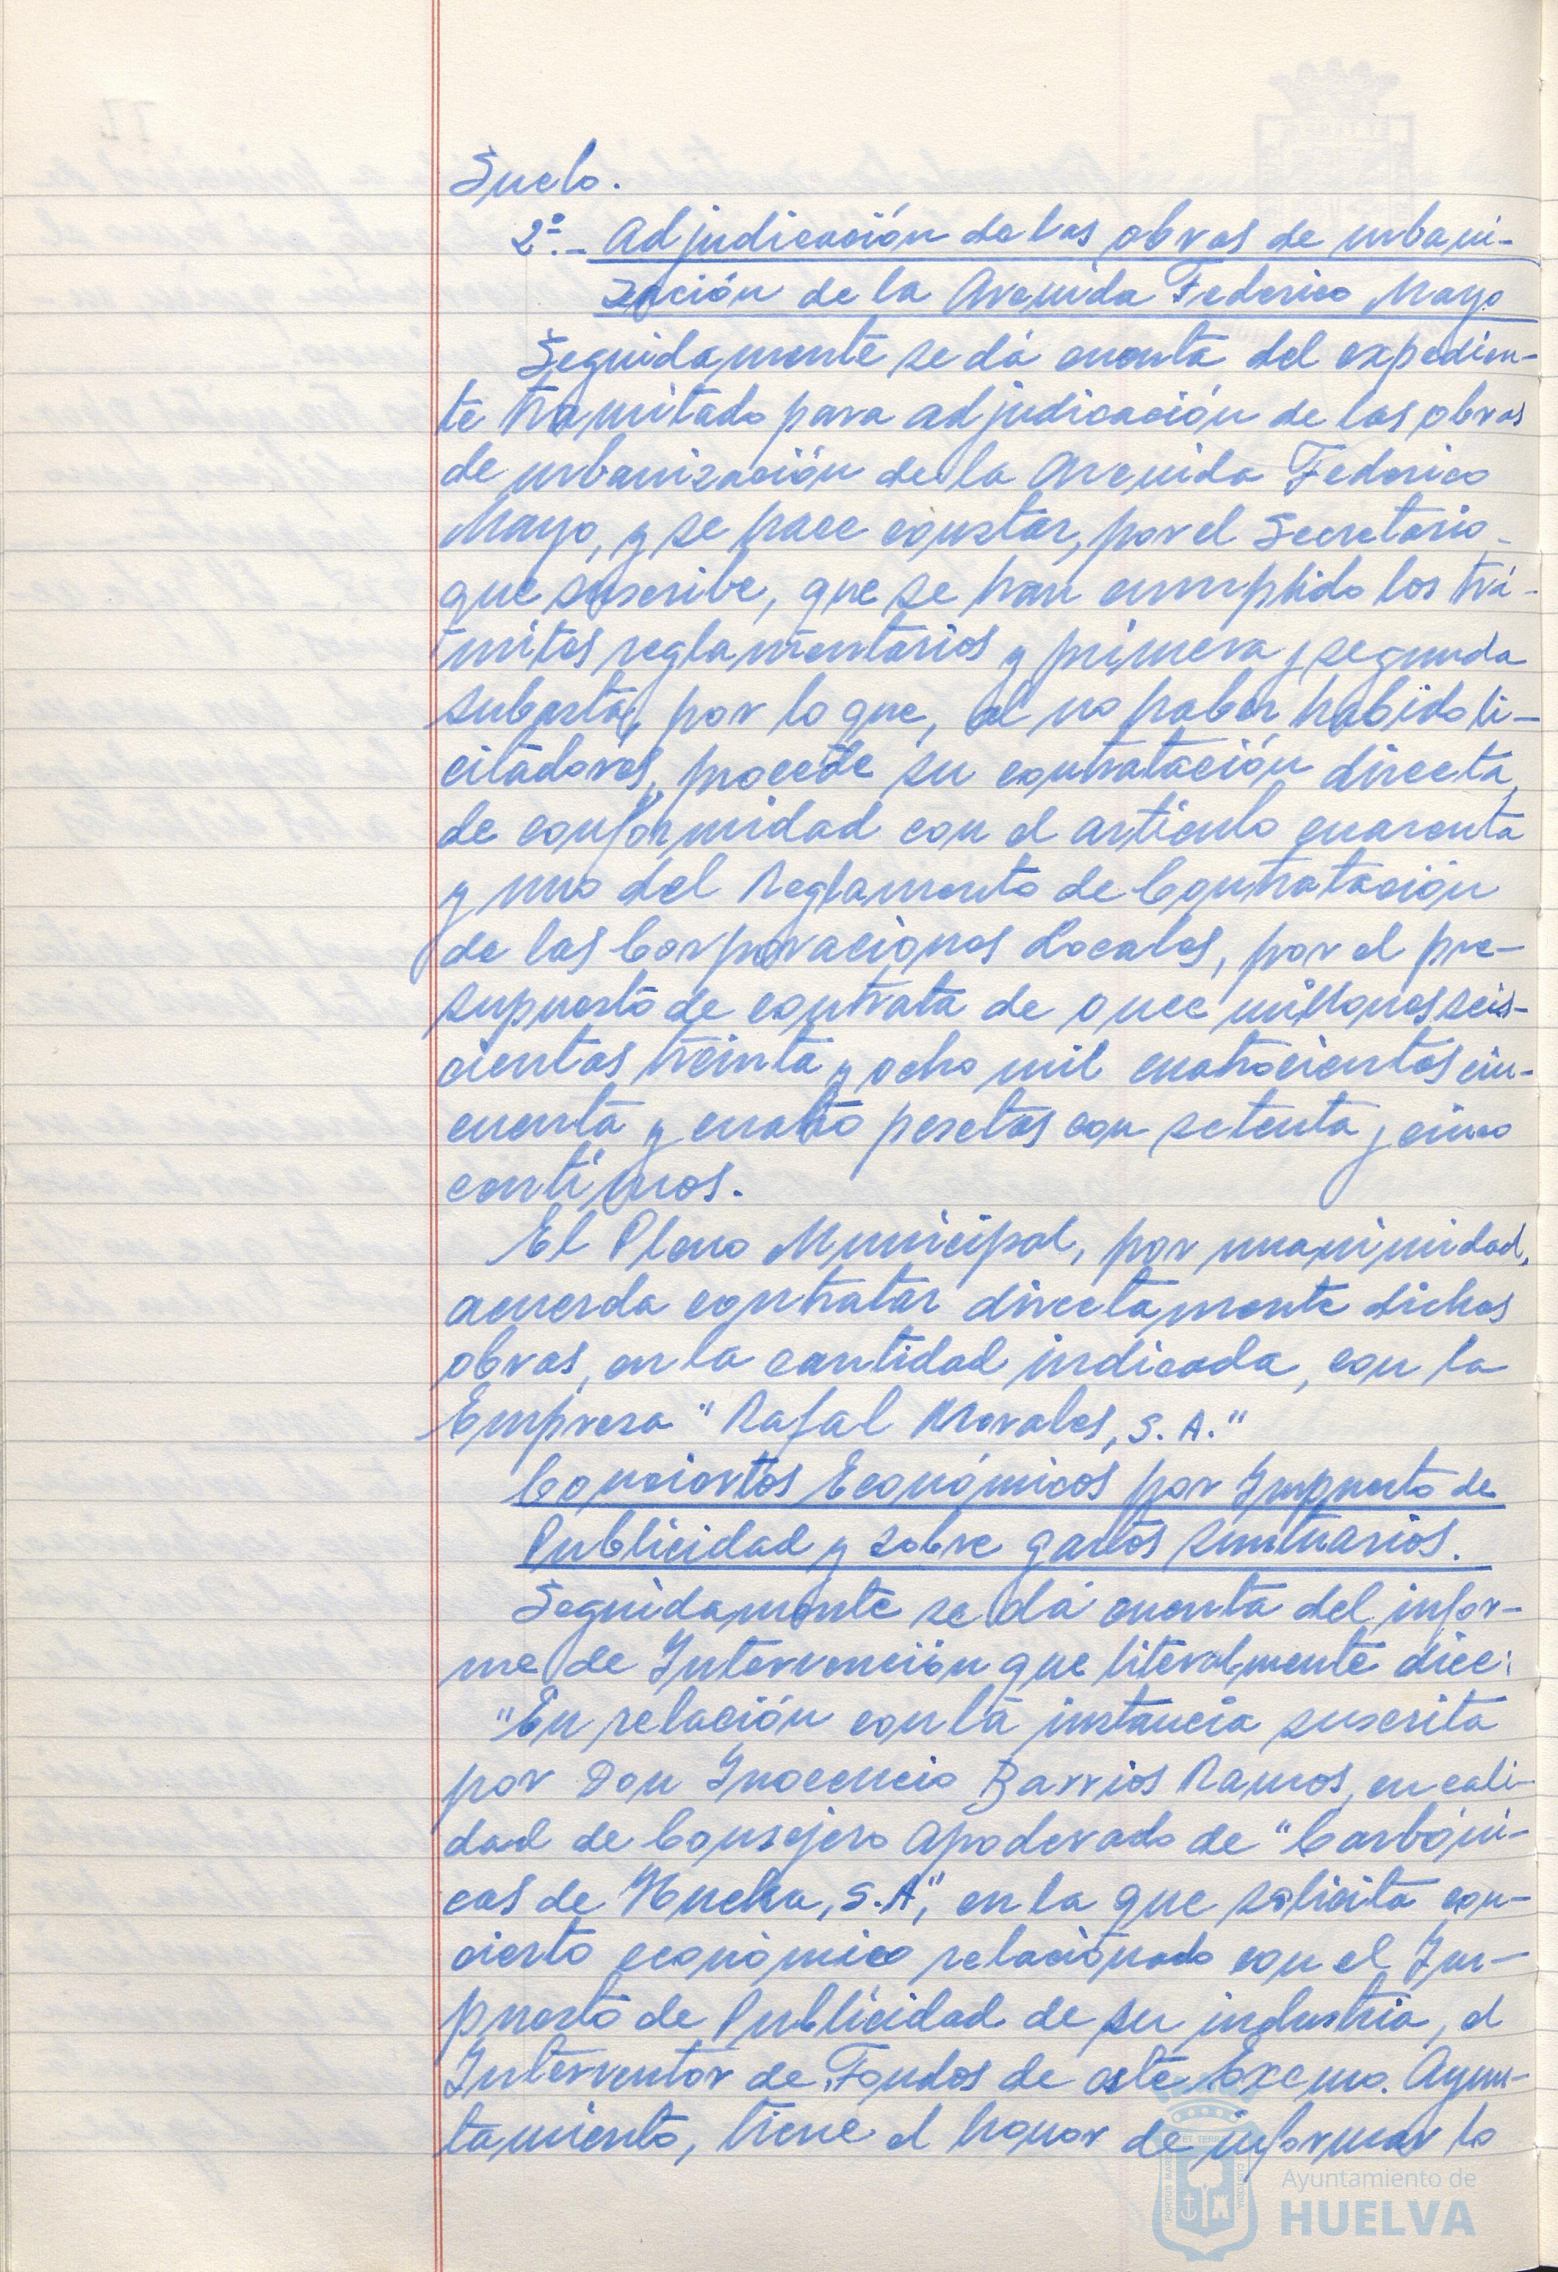 Suelo.
2º.- Adjudicación de las obras de urbani-
zación de la Avenida Federico Mayo
Seguidamente se dá cuenta del expedien-
te tramitado para adjudicación de las obras
de urbanización de la Avenida Federico
Mayo, y se hace constar, por el Secretario
que suscribe, que se han cumplido los trá-
mites reglamentarios y primera y segunda
subasta, por lo que, al no haber habido li-
citadores, procede su contratación directa,
de conformidad con el artículo cuarenta
y uno del Reglamento de Contratación
de las Corporaciones Locales, por el pre-
supuesto de contrata de once millones seis-
cientas treinta y ocho mil cuatrocientas cin-
cuenta y cuatro pesetas con setenta y cinco
centimos.
El Pleno Municipal, por unanimidad,
acuerda contratar directamente dichas
obras, en la cantidad indicada, con la
Empresa "Rafal Morales, S.A."
Conciertos Económicos por Impuesto de
Publicidad y sobre gastos suntuarios.
Seguidamente se dá cuenta del infor-
me de Intervención que literalmente dice:
"En relación con la instancia suscrita
por Don Inocencio Barrios Ramos, en cali-
dad de Consejero Apoderado de "Carbóni-
cas de Huelva, S.A", en la que solicita con-
cierto económico relacionado con el Im-
puesto de Publicidad de su industria, el
Interventor de Fondos de este Excmo. Ayun-
tamiento, tiene el honor de informar lo
Ayuntamiento de
HUELVA